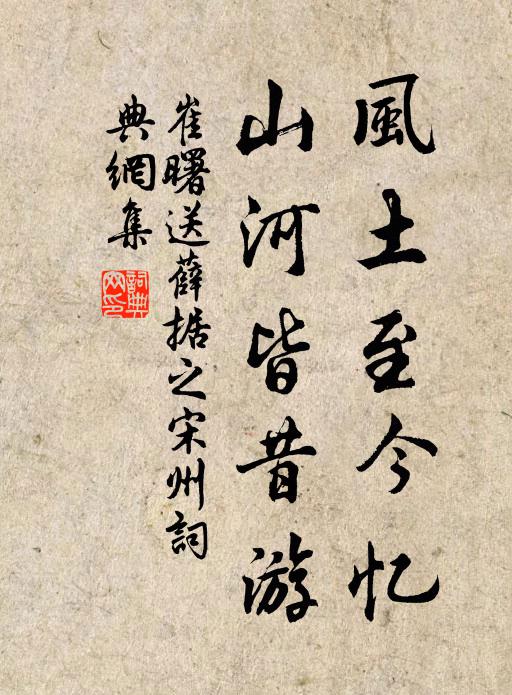 風土至今忆
山河皆昔游
崔曙送薛据之宋州詞
典網集
詞典
网印